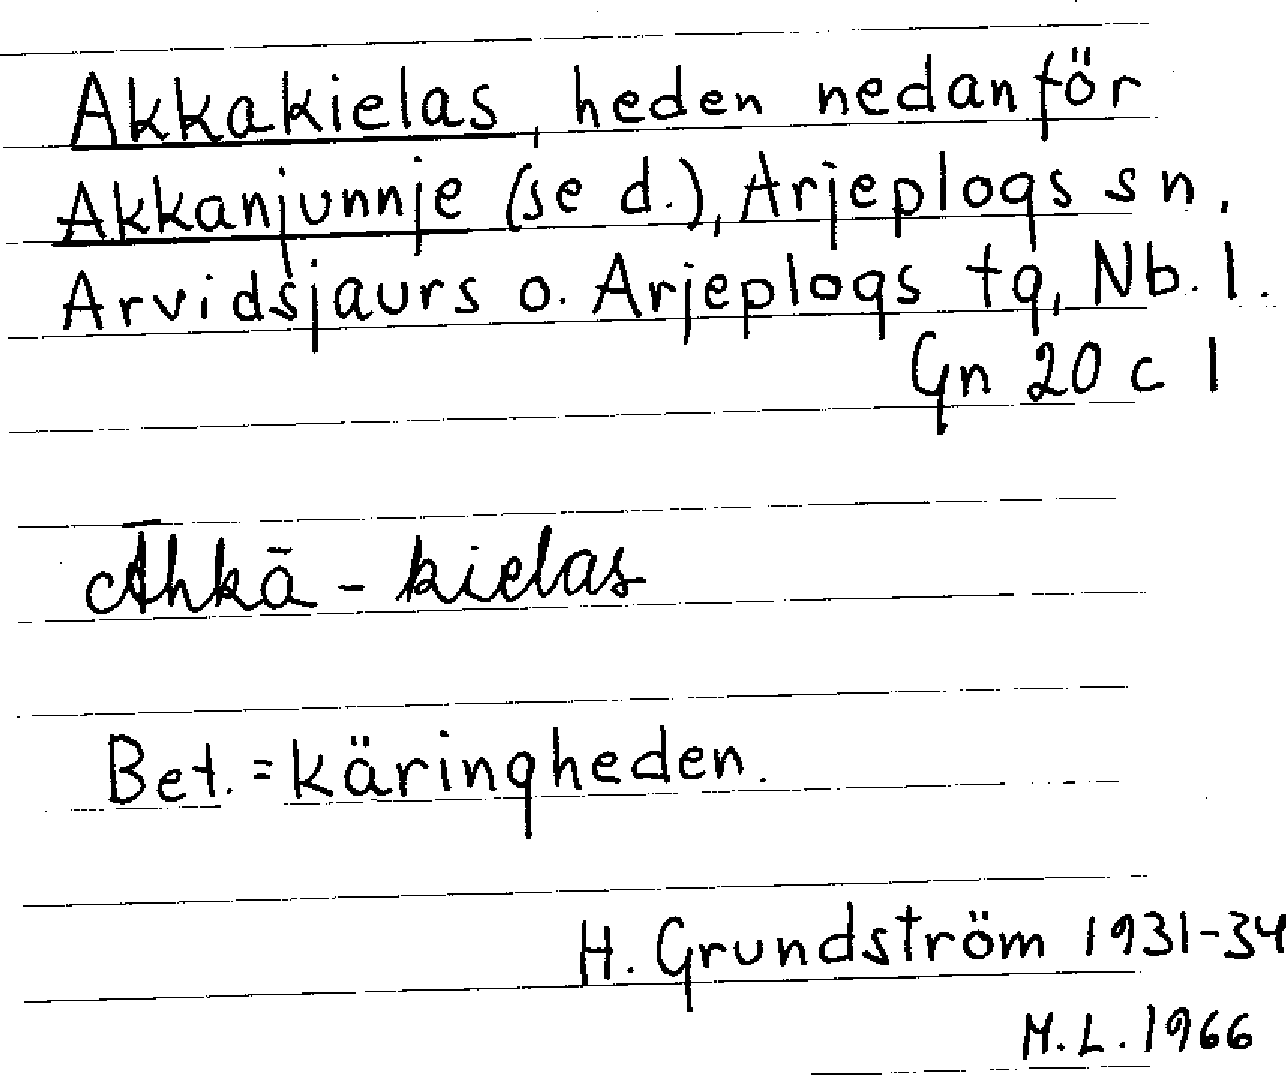 Akkakielas, heden nedanför
Akkanjunnje (se d.), Arjeplogs sn.
Arvidsjaurs o. Arjeplogs tg, Nb. l.
Gn 20 c 1
Āhkā - kielas
Bet. = käringheden.
H. Grundström 1931-34
M.L. 1966